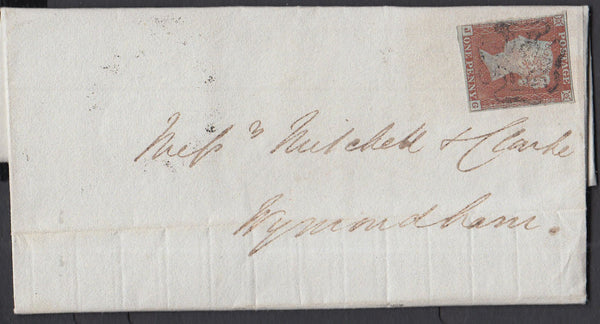 POSTAGE
ONE PENNY
J G
Messrs Mitchell & Clarke
Wymondham.